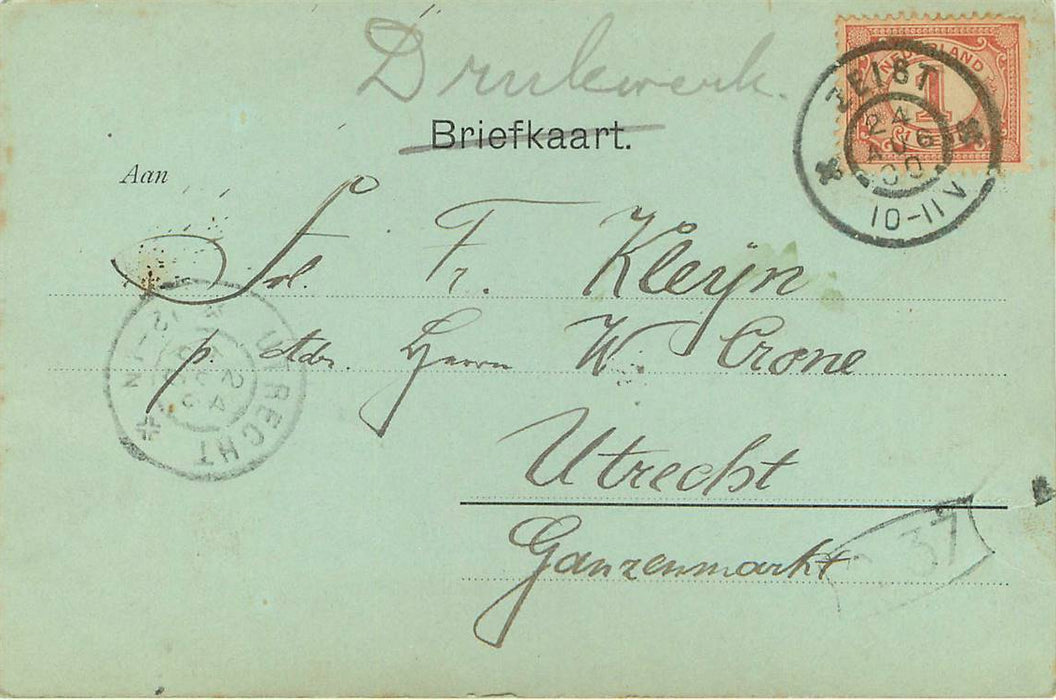 Drukwerk.
Briefkaart.
NEDERLAND
1
ZEIST
24
AUG
00
10-11 V
Aan
Frl. Fr. Kleyn
p. Adr. Herrn W. Crone
Utrecht
Ganzenmarkt
UTRECHT
24
AUG
12-1N
37